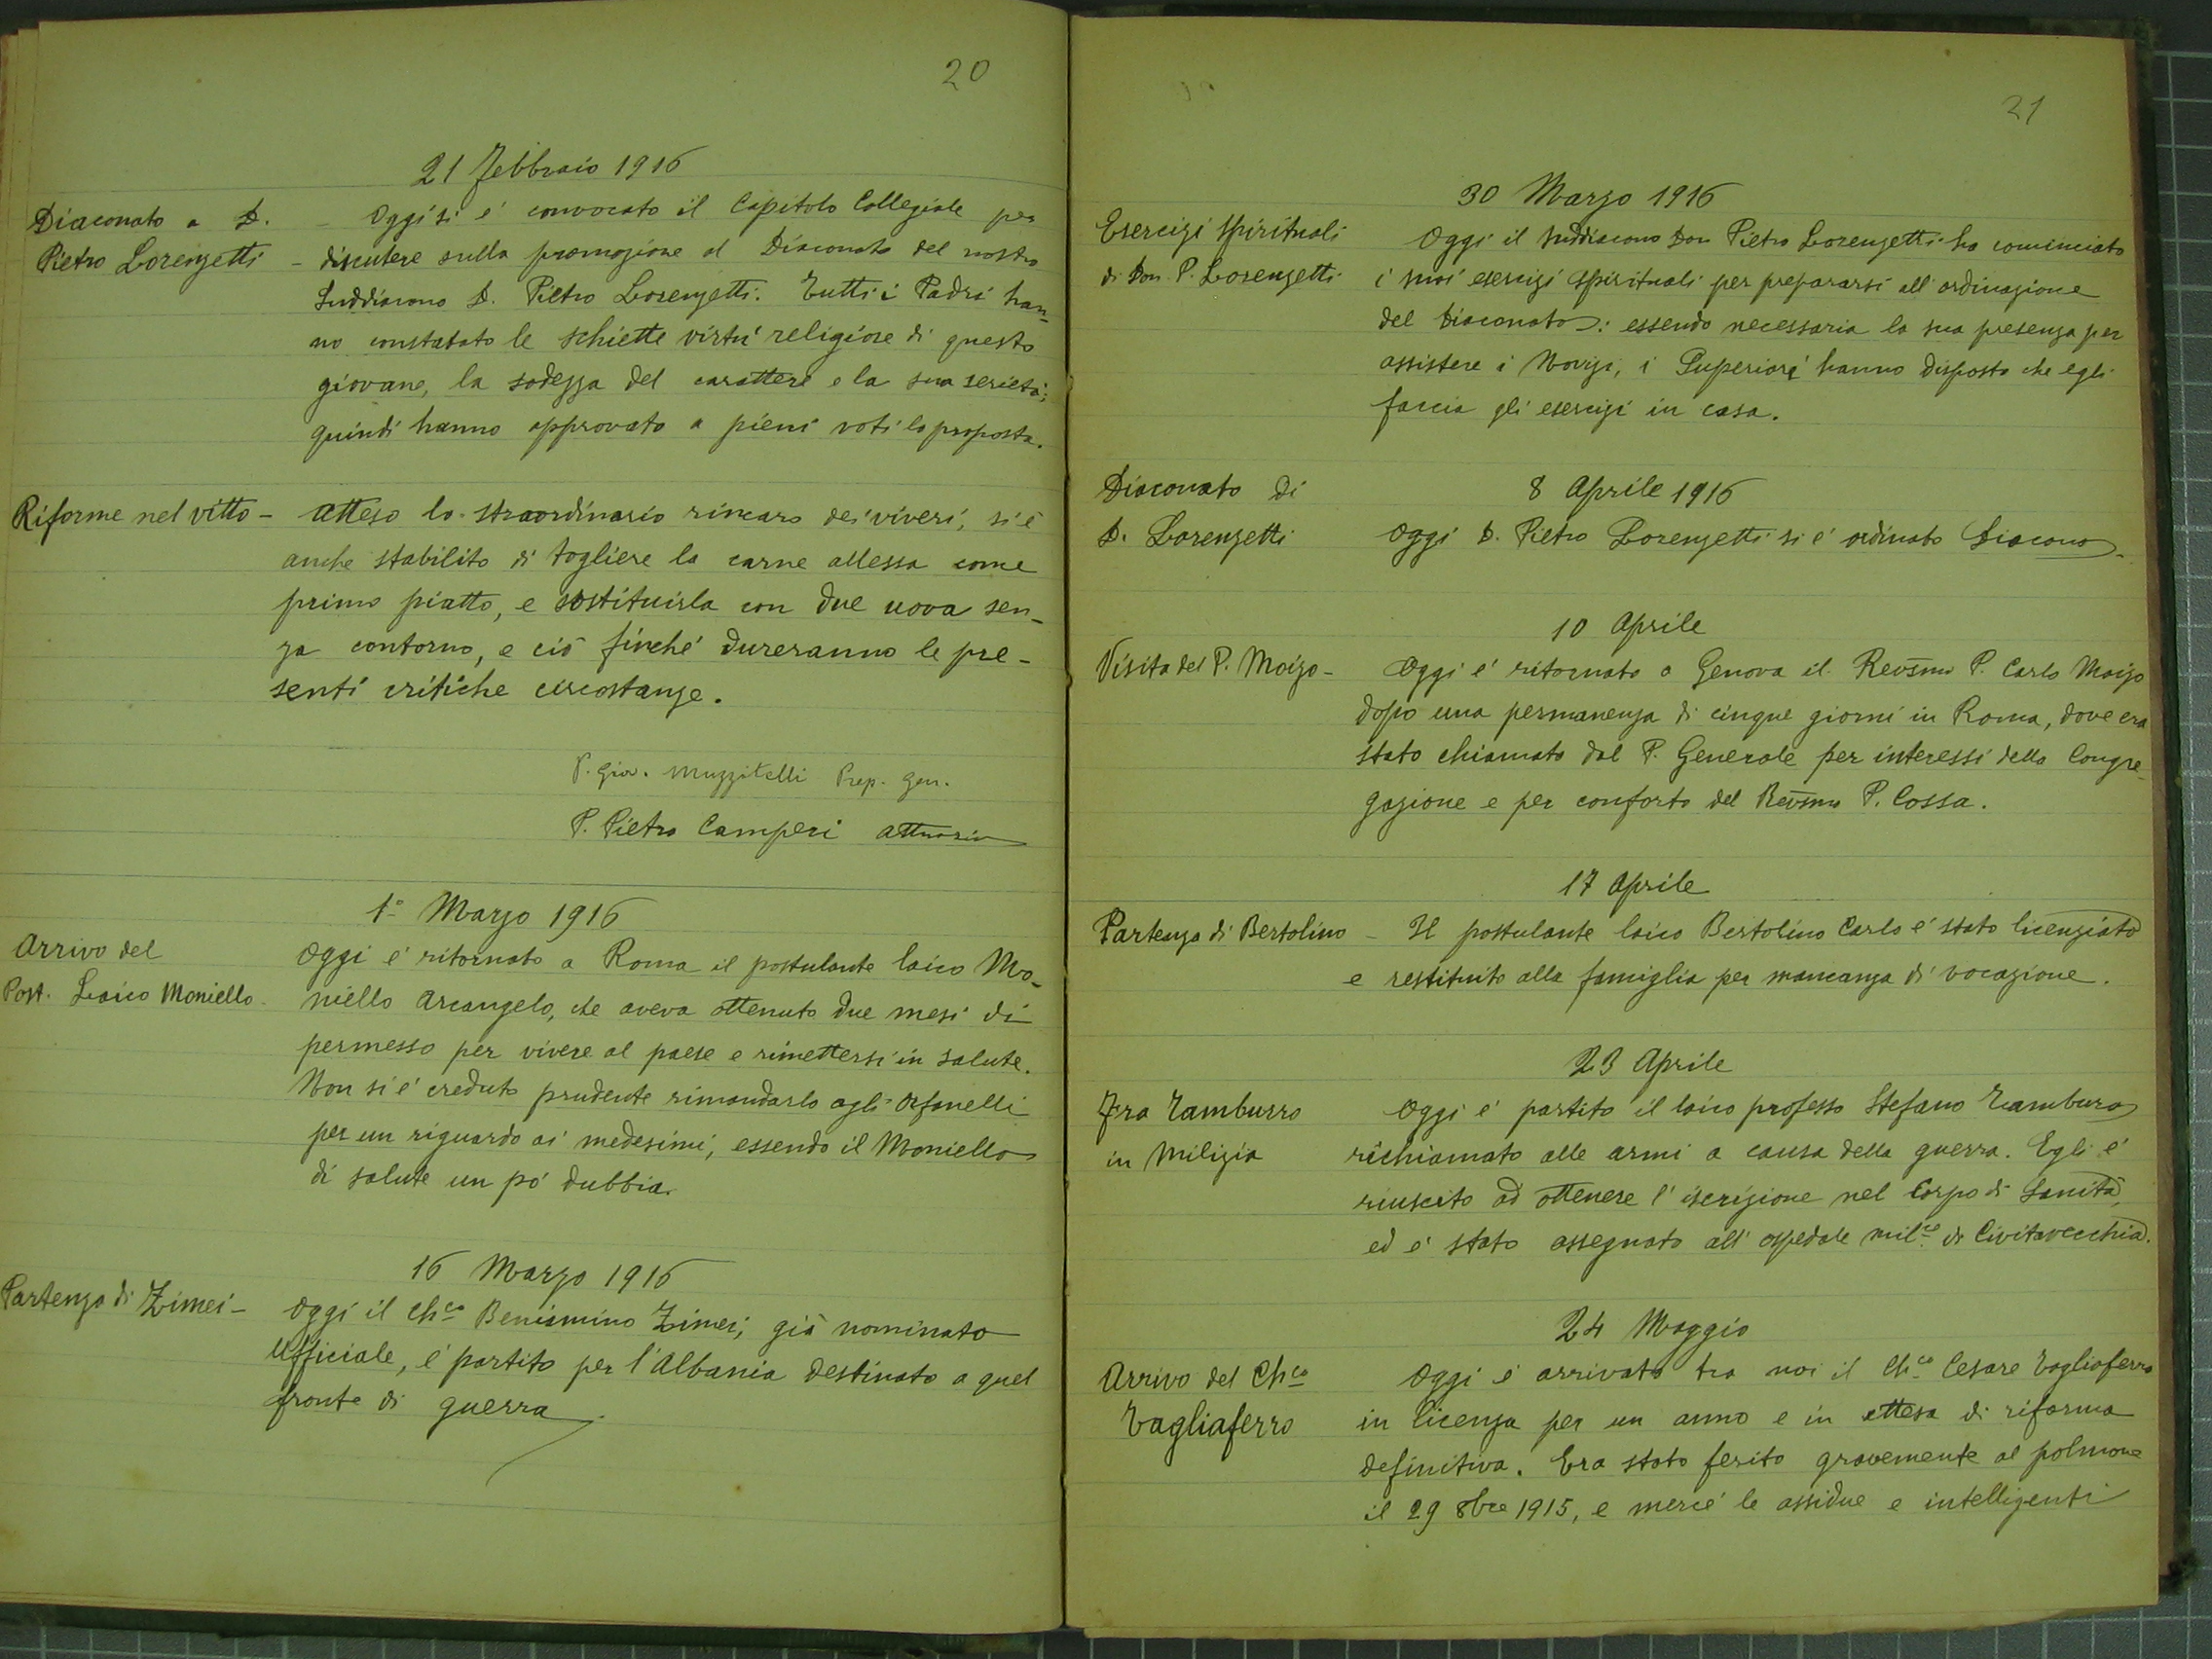 20
21 Febbraio 1916
Diaconato a D.
Pietro Lorenzetti
- Oggi si é convocato il Capitolo Collegiale per
- discutere sulla promozione al Diaconato del nostro
Suddiacono D. Pietro Lorenzetti. Tutti i Padri han-
no constatato le schiette virtú religiose di questo
giovane, la sodezza del carattere e la sua serietà;
quindi hanno approvato a pieni voti la proposta.
Riforme nel vitto - Atteso lo straordinario rincaro dei viveri, si é
anche stabilito di togliere la carne allessa come
primo piatto, e sostituirla con due uova sen-
za contorno, e ciò finché dureranno le pre-
senti critiche circostanze.
P. Giov. Muzzitelli Prep. Gen.
P. Pietro Camperi attuario
1° Marzo 1916
Arrivo del
Post. Laico Moniello.
Oggi é ritornato a Roma il postulante laico Mo-
niello Arcangelo, che aveva ottenuto due mesi di
permesso per vivere al paese e rimettersi in salute.
Non si é creduto prudente rimandarlo agli Orfanelli
per un riguardo ai medesimi, essendo il Moniello
di salute un pó dubbia.
16 Marzo 1916
Partenza di Zimei -
Oggi il Ch.co Beniamino Zimei, già nominato
Ufficiale, é partito per l'Albania destinato a quel
fronte di guerra.
21
30 Marzo 1916
Esercizi spirituali
di Don P. Lorenzetti
Oggi il suddiacono Don Pietro Lorenzetti ha cominciato
i suoi esercizi spirituali per prepararsi all'ordinazione
del Diaconato: essendo necessaria la sua presenza per
assistere i Novizi, i Superiori hanno disposto che egli
faccia gli esercizi in casa.
8 Aprile 1916
Diaconato di
D. Lorenzetti
Oggi D. Pietro Lorenzetti si é ordinato Diacono.
10 Aprile
Visita del P. Moizo - Oggi é ritornato a Genova il Revsmo P. Carlo Moizo
dopo una permanenza di cinque giorni in Roma, dove era
stato chiamato dal P. Generale per interessi della Congre-
gazione e per conforto del Revsmo P. Cossa.
17 Aprile
Partenza di Bertolino - Il postulante laico Bertolino Carlo é stato licenziato
e restituito alla famiglia per mancanza di vocazione.
23 Aprile
Fra Tamburro
in Milizia
Oggi é partito il laico professo Stefano Tamburo
richiamato alle armi a causa della guerra. Egli é
riuscito ad ottenere l'iscrizione nel Corpo di Sanità,
ed é stato assegnato all'ospedale mil.e di Civitavecchia.
24 Maggio
Arrivo del Ch.co
Tagliaferro
Oggi é arrivato tra noi il Ch.co Cesare Tagliaferro
in licenza per un anno e in attesa di riforma
definitiva. Era stato ferito gravemente al polmone
il 29 8bre 1915, e mercé le assidue e intelligenti